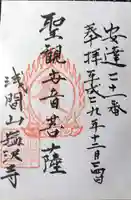 安達二十一番
奉拝 平成二九年十二月四日
聖観世音菩薩
浅間山 塩沢寺